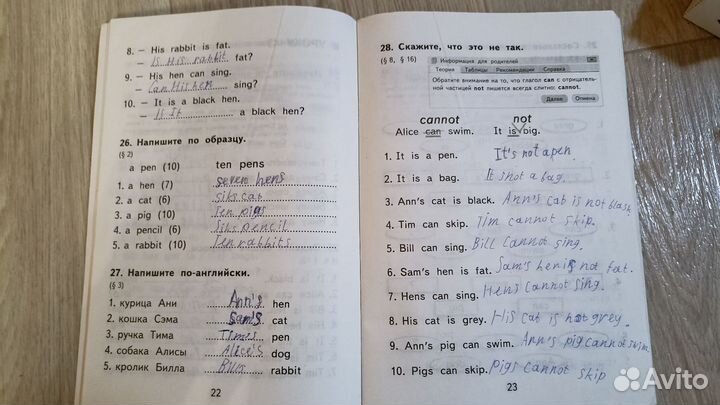 8. – His rabbit is fat.
– Is His rabbit fat?
9. – His hen can sing.
– Can His hen sing?
10. – It is a black hen.
– Is It a black hen?
26. Напишите по образцу.
(§ 2)
a pen (10) ten pens
1. a hen (7) seven hens
2. a cat (6) siks cat
3. a pig (10) Ten pigs
4. a pencil (6) siks pencil
5. a rabbit (10) Ten rabbits
27. Напишите по-английски.
(§ 3)
1. курица Ани Ann's hen
2. кошка Сэма Sam's cat
3. ручка Тима Times pen
4. собака Алисы Alice's dog
5. кролик Билла Bills rabbit
22
28. Скажите, что это не так.
(§ 8, § 16)
Информация для родителей
Теория Таблицы Рекомендации Справка
Обратите внимание на то, что глагол can с отрицатель-
ной частицей not пишется всегда слитно: cannot.
Далее Отмена
cannot not
Alice can swim. It is big.
1. It is a pen. It's not a pen
2. It is a bag. It s not a bag.
3. Ann's cat is black. Ann's cat is not black
4. Tim can skip. Tim cannot skip.
5. Bill can sing. Bill cannot sing.
6. Sam's hen is fat. Sam's hen is not fat.
7. Hens can sing. Hens cannot sing.
8. His cat is grey. His cat is not grey.
9. Ann's pig can swim. Ann's pig cannot swim.
10. Pigs can skip. Pigs cannot skip
23
Avito